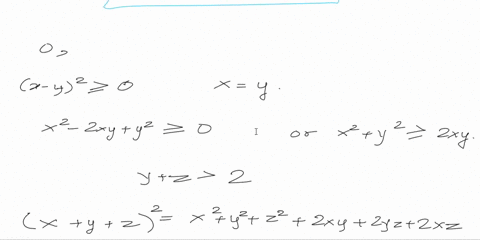 0,
(x-y)² ≥ 0 x = y.
x² - 2xy + y² ≥ 0 or x² + y² ≥ 2xy.
y + z > 2
(x + y + z)² = x² + y² + z² + 2xy + 2yz + 2xz